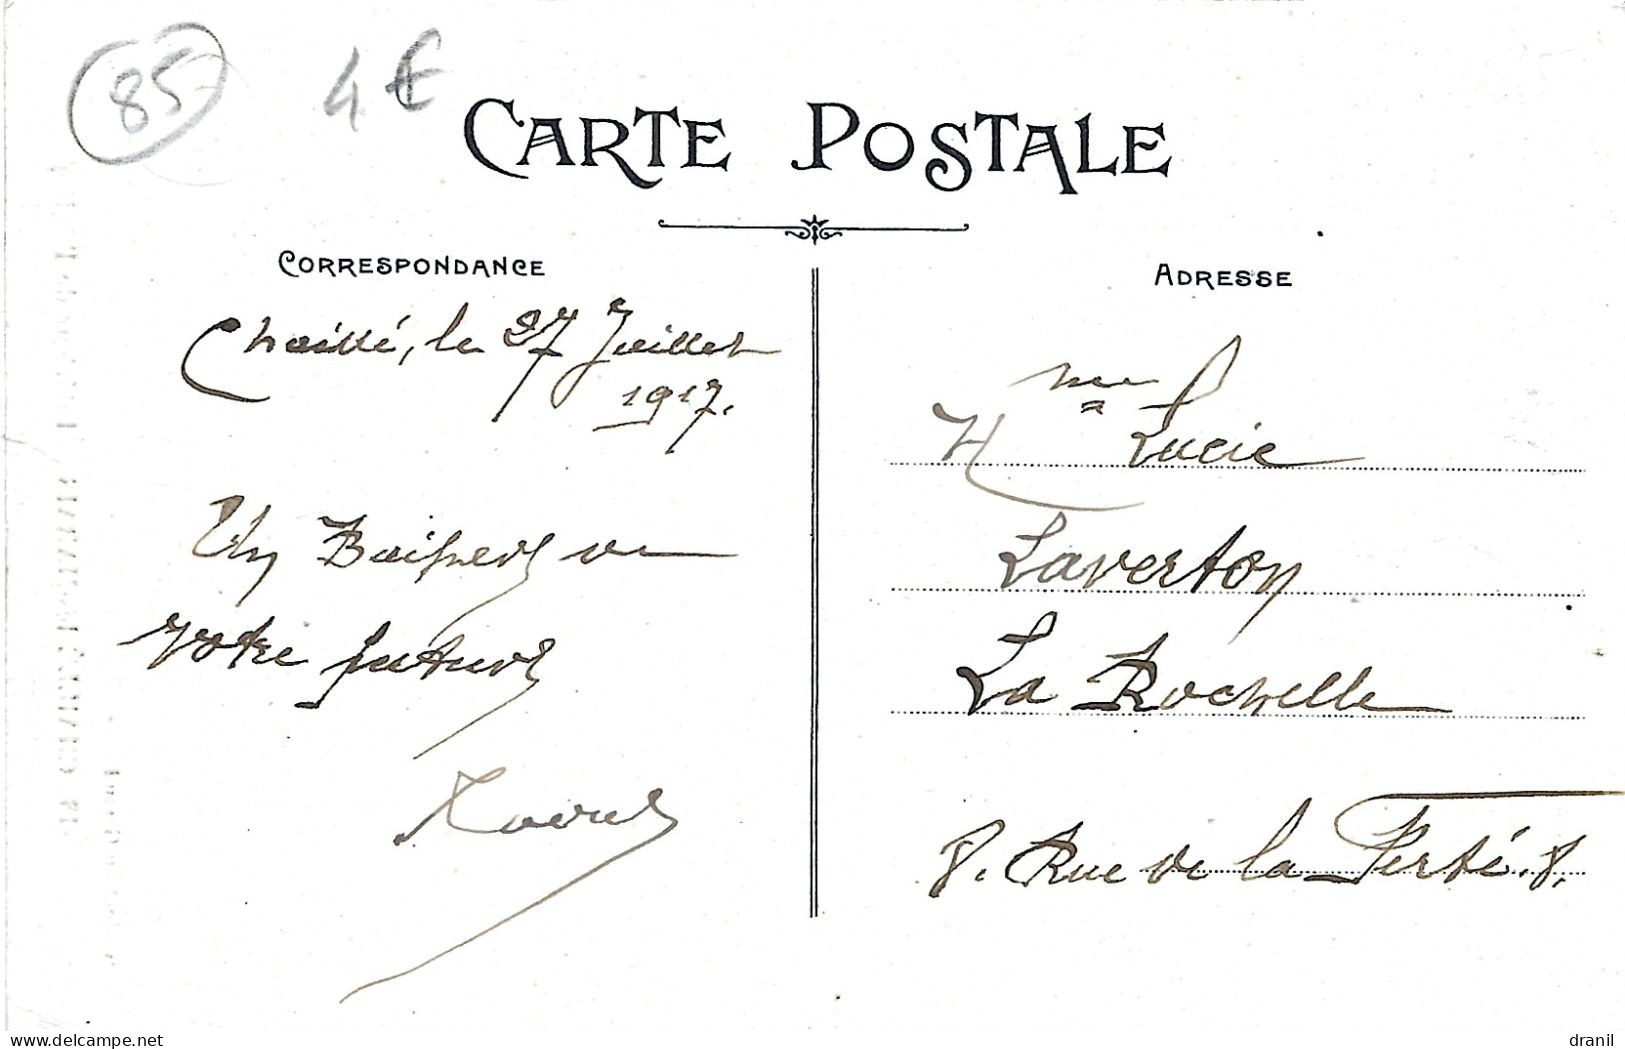 85
4€
CARTE POSTALE
CORRESPONDANCE
Chaillé, le 27 Juillet
1917.
Un Baiser de
votre future
ADRESSE
Mme
Lucie
Laverton
La Rochelle
8. Rue de la Ferté. 8.
delcampe.net
dranil